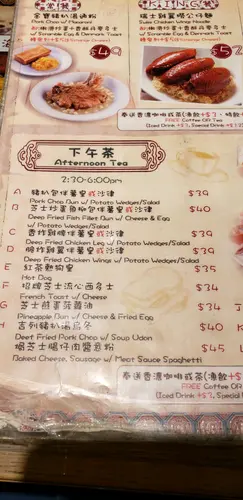 KING
金寶豬扒湯通粉
Pork Chop w/ Macaroni
w/ Scramble Egg & Danmark Toast
$49
瑞士雞翼撈公仔麵
Swiss Chicken Wings Noodle
w/ Scramble Egg & Danmark Toast
$5
奉送香濃咖啡或茶(凍飲+$3
FREE Coffee OR Tea
(Iced Drink +$3
下午茶
Afternoon Tea
2:30-6:00pm
A 豬扒包伴薯皇或沙律 $39
Pork Chop Bun w/ Potato Wedges/Salad
B 芝士炸蛋魚柳包伴薯皇或沙律 $40
Deep Fried Fish Fillet Bun w/ Cheese & Egg
w/ Potato Wedges/Salad
C 香炸雞髀伴薯皇或沙律 $39
Deep Fried Chicken Leg w/ Potato Wedges/Salad
D 爆炸雞翼伴薯皇或沙律 $39
Deep Fried Chicken Wings w/ Potato Wedges/Salad
E 紅茶熱狗皇 $35
Hot Dog
F 招牌芝士流心西多士 $34
French Toast w/ Cheese
G 芝士煎蛋菠蘿油 $34
Pineapple Bun w/ Cheese & Fried Egg
H 吉列豬扒湯烏冬 $40
Deef Fried Pork Chop w/ Soup Udon
焗芝士腸仔肉醬意粉 $45
Baked Cheese, Sausage w/ Meat Sauce Spaghetti
奉送香濃咖啡或茶(凍飲
FREE Coffee OR
(Iced Drink +$3,